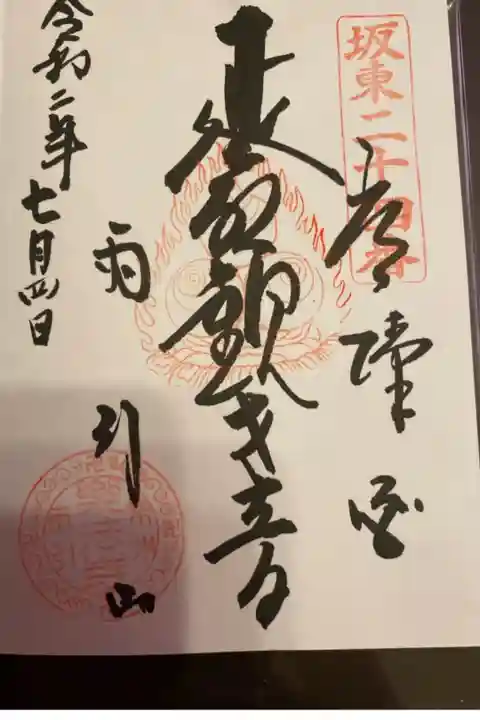 坂東二十四番
常陸国
観世音
雨引山
令和二年七月四日